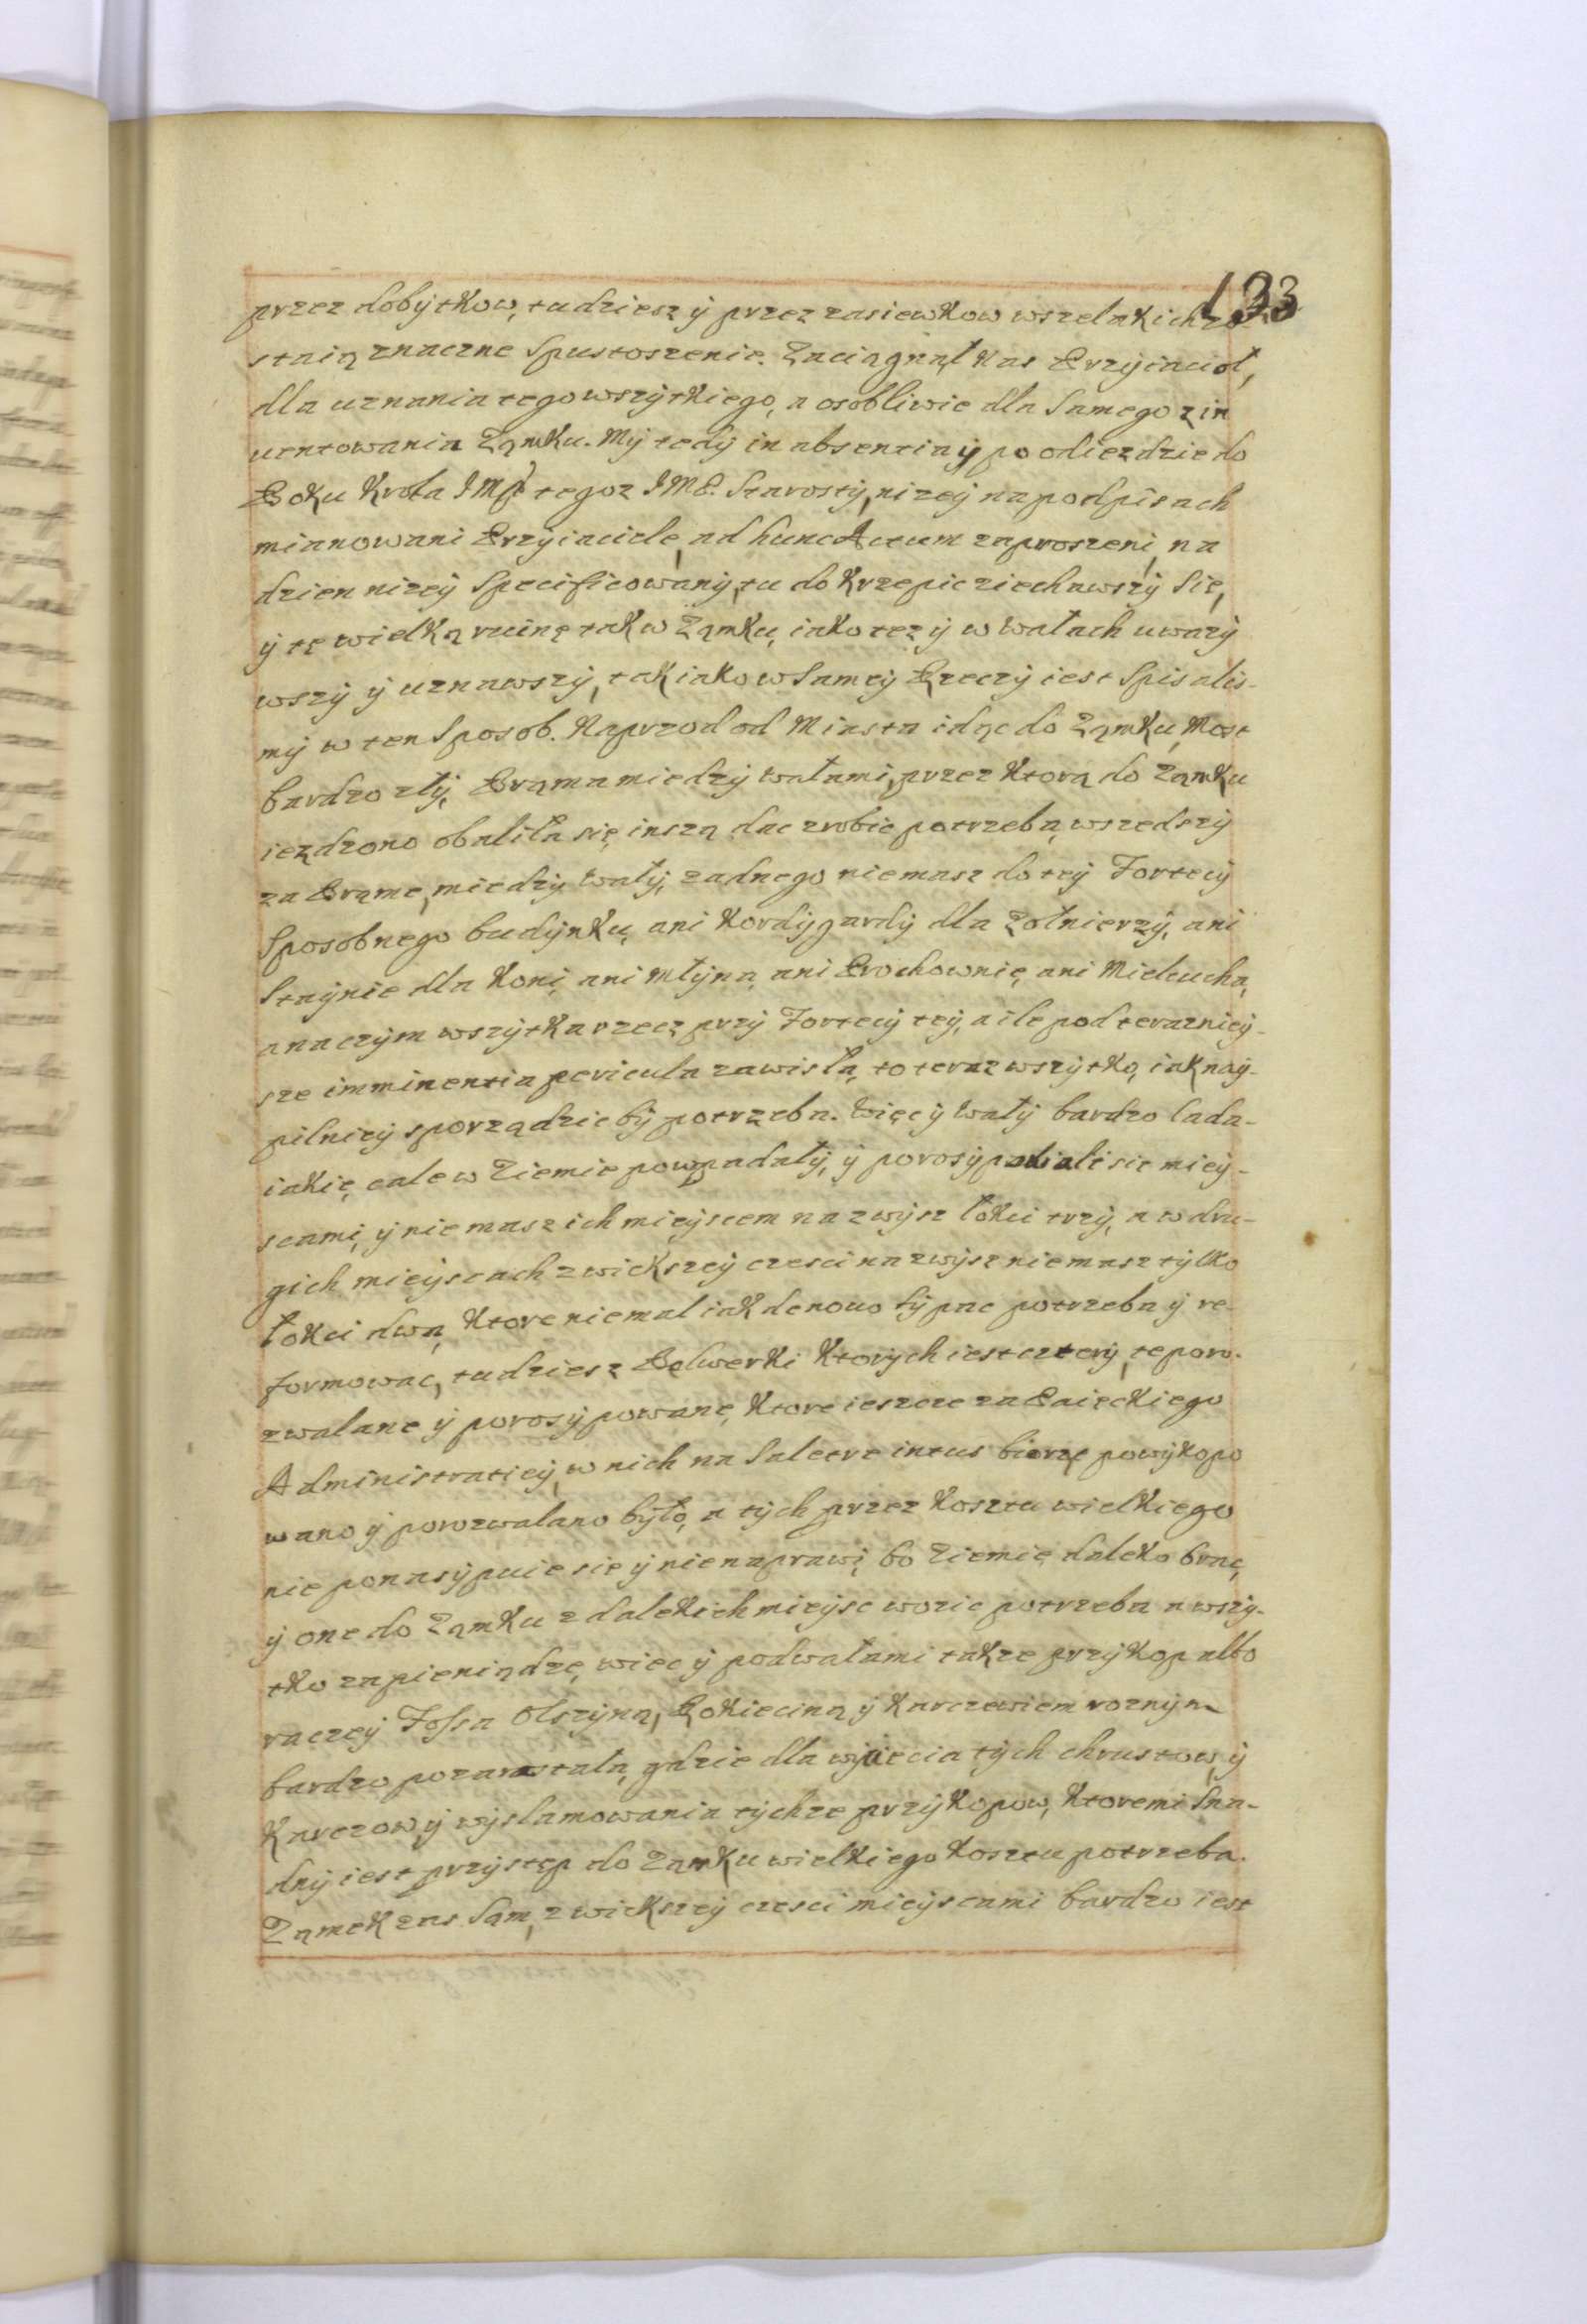 133
przez dobytkow, tudziesz ÿ przez zasiewkow wszelakich zo
staią znaczne Spustoszenie. Zaciągnął Nas Przyiaciol,
dla uznania tego wszÿtkiego, a osobliwie dla Samego zin
uentowania Ząmku. Mÿ tedÿ in absentia ÿ po odieździe do
Boku Krola JMſci tegoz JMP. Starostÿ, nizeÿ na podpisach
mianowani Przÿiaciele, ad hunc Actum zaproszeni, na
dzien nizeÿ Specificowanÿ, tu do Krzepic ziechawszÿ Się,
ÿ tę wielką ruinę tak w Ząmku, iako tez ÿ w Wałach uwazÿ
wszÿ ÿ uznawszÿ, tak iako w Sameÿ Rzeczÿ iest Spisalis-
mÿ w ten Sposob. Naprzod od Miasta idąc do Ząmku, Most
bardzo złÿ, Brąma miedzÿ wałami, przez Ktorą do Ząmku
iezdzono obaliła się, inszą dac zrobic potrzeba, wszedszÿ
za Brąme, miedzÿ Wałÿ, zadnego niemasz do teÿ Fortecÿ
Sposobnego budÿnku, ani Kordÿgardÿ dla Zołnierzÿ, ani
Staÿnie dla Koni, ani Młÿna, ani Prochownię, ani Mielcucha,
a na czÿm wszÿtka rzecz przÿ Fortecÿ teÿ, a ile pod terazniey-
sze imminentia pericula zawisła, to teraz wszÿtko, iak naÿ-
pilnieÿ sporządzic bÿ potrzeba. Więc ÿ Wałÿ bardzo lada-
iakię, cale w Ziemie powpadałÿ, ÿ porosÿpali sie mieÿ-
scami, ÿ niemasz ich mieÿscem na zwÿsz łokci trzÿ, a w dru-
gich mieÿscach z wiekszeÿ czesci na zwÿsz niemasz tÿlko
łokci dwa, Ktore niemal iak denouo Sÿpac potrzeba ÿ re-
formowac, tudziesz Bolwerki Ktorÿch iest czterÿ, te poro-
zwalane ÿ porosÿpowane, Ktore ieszcze za Paięckiego
Administratieÿ, w nich na Saletre intus biorzę powÿkopo
wano ÿ porozwalano bÿło, a tÿch przez Kosztu wielkiego
nie ponasÿpuie sie ÿ nienaprawi, bo Ziemię daleko brac,
ÿ one do Ząmku z dalekich mieÿsc wozic potrzeba a wszÿ-
tko za pieniądze, wiec ÿ pod wałami takze przÿkop albo
raczeÿ Fossa Olszÿną, Rokieciną ÿ Karczewiem roznÿm
bardzo pozarastała, gdzie dla wÿcięcia tÿch chrustow, ÿ
Karczow ÿ wÿslamowania tÿchze przÿkopow, Ktoremi Sna-
dnÿ iest przÿstęp do Ząmku wielkiego Kosztu potrzeba.
Ząmek zas Sąm, z wiekszeÿ czesci mieÿscami bardzo iest